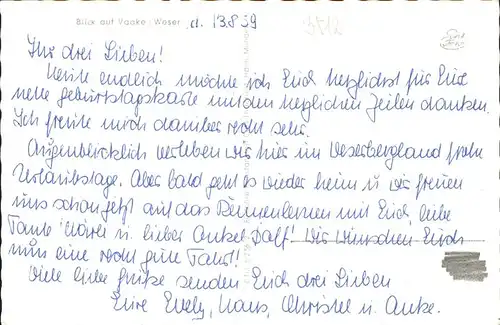 Blick auf Vaake / Weser d. 13.8.59
Ihr drei Lieben!
Heute endlich möchte ich Euch herzlichst für Eure
nette Geburtstagskarte mit den herzlichen Zeilen danken.
Ich freute mich darüber recht sehr.
Augenblicklich verleben wir hier im Weserbergland frohe
Urlaubstage. Aber bald geht es wieder heim u. wir freuen
uns schon jetzt auf das Kennenlernen mit Euch, liebe
Tante u. lieber Onkel Wir wünschen Euch
nun eine recht gute Fahrt!
Viele liebe Grüße senden Euch drei Lieben
Eure Evely, Hans, Christel u. Anke.